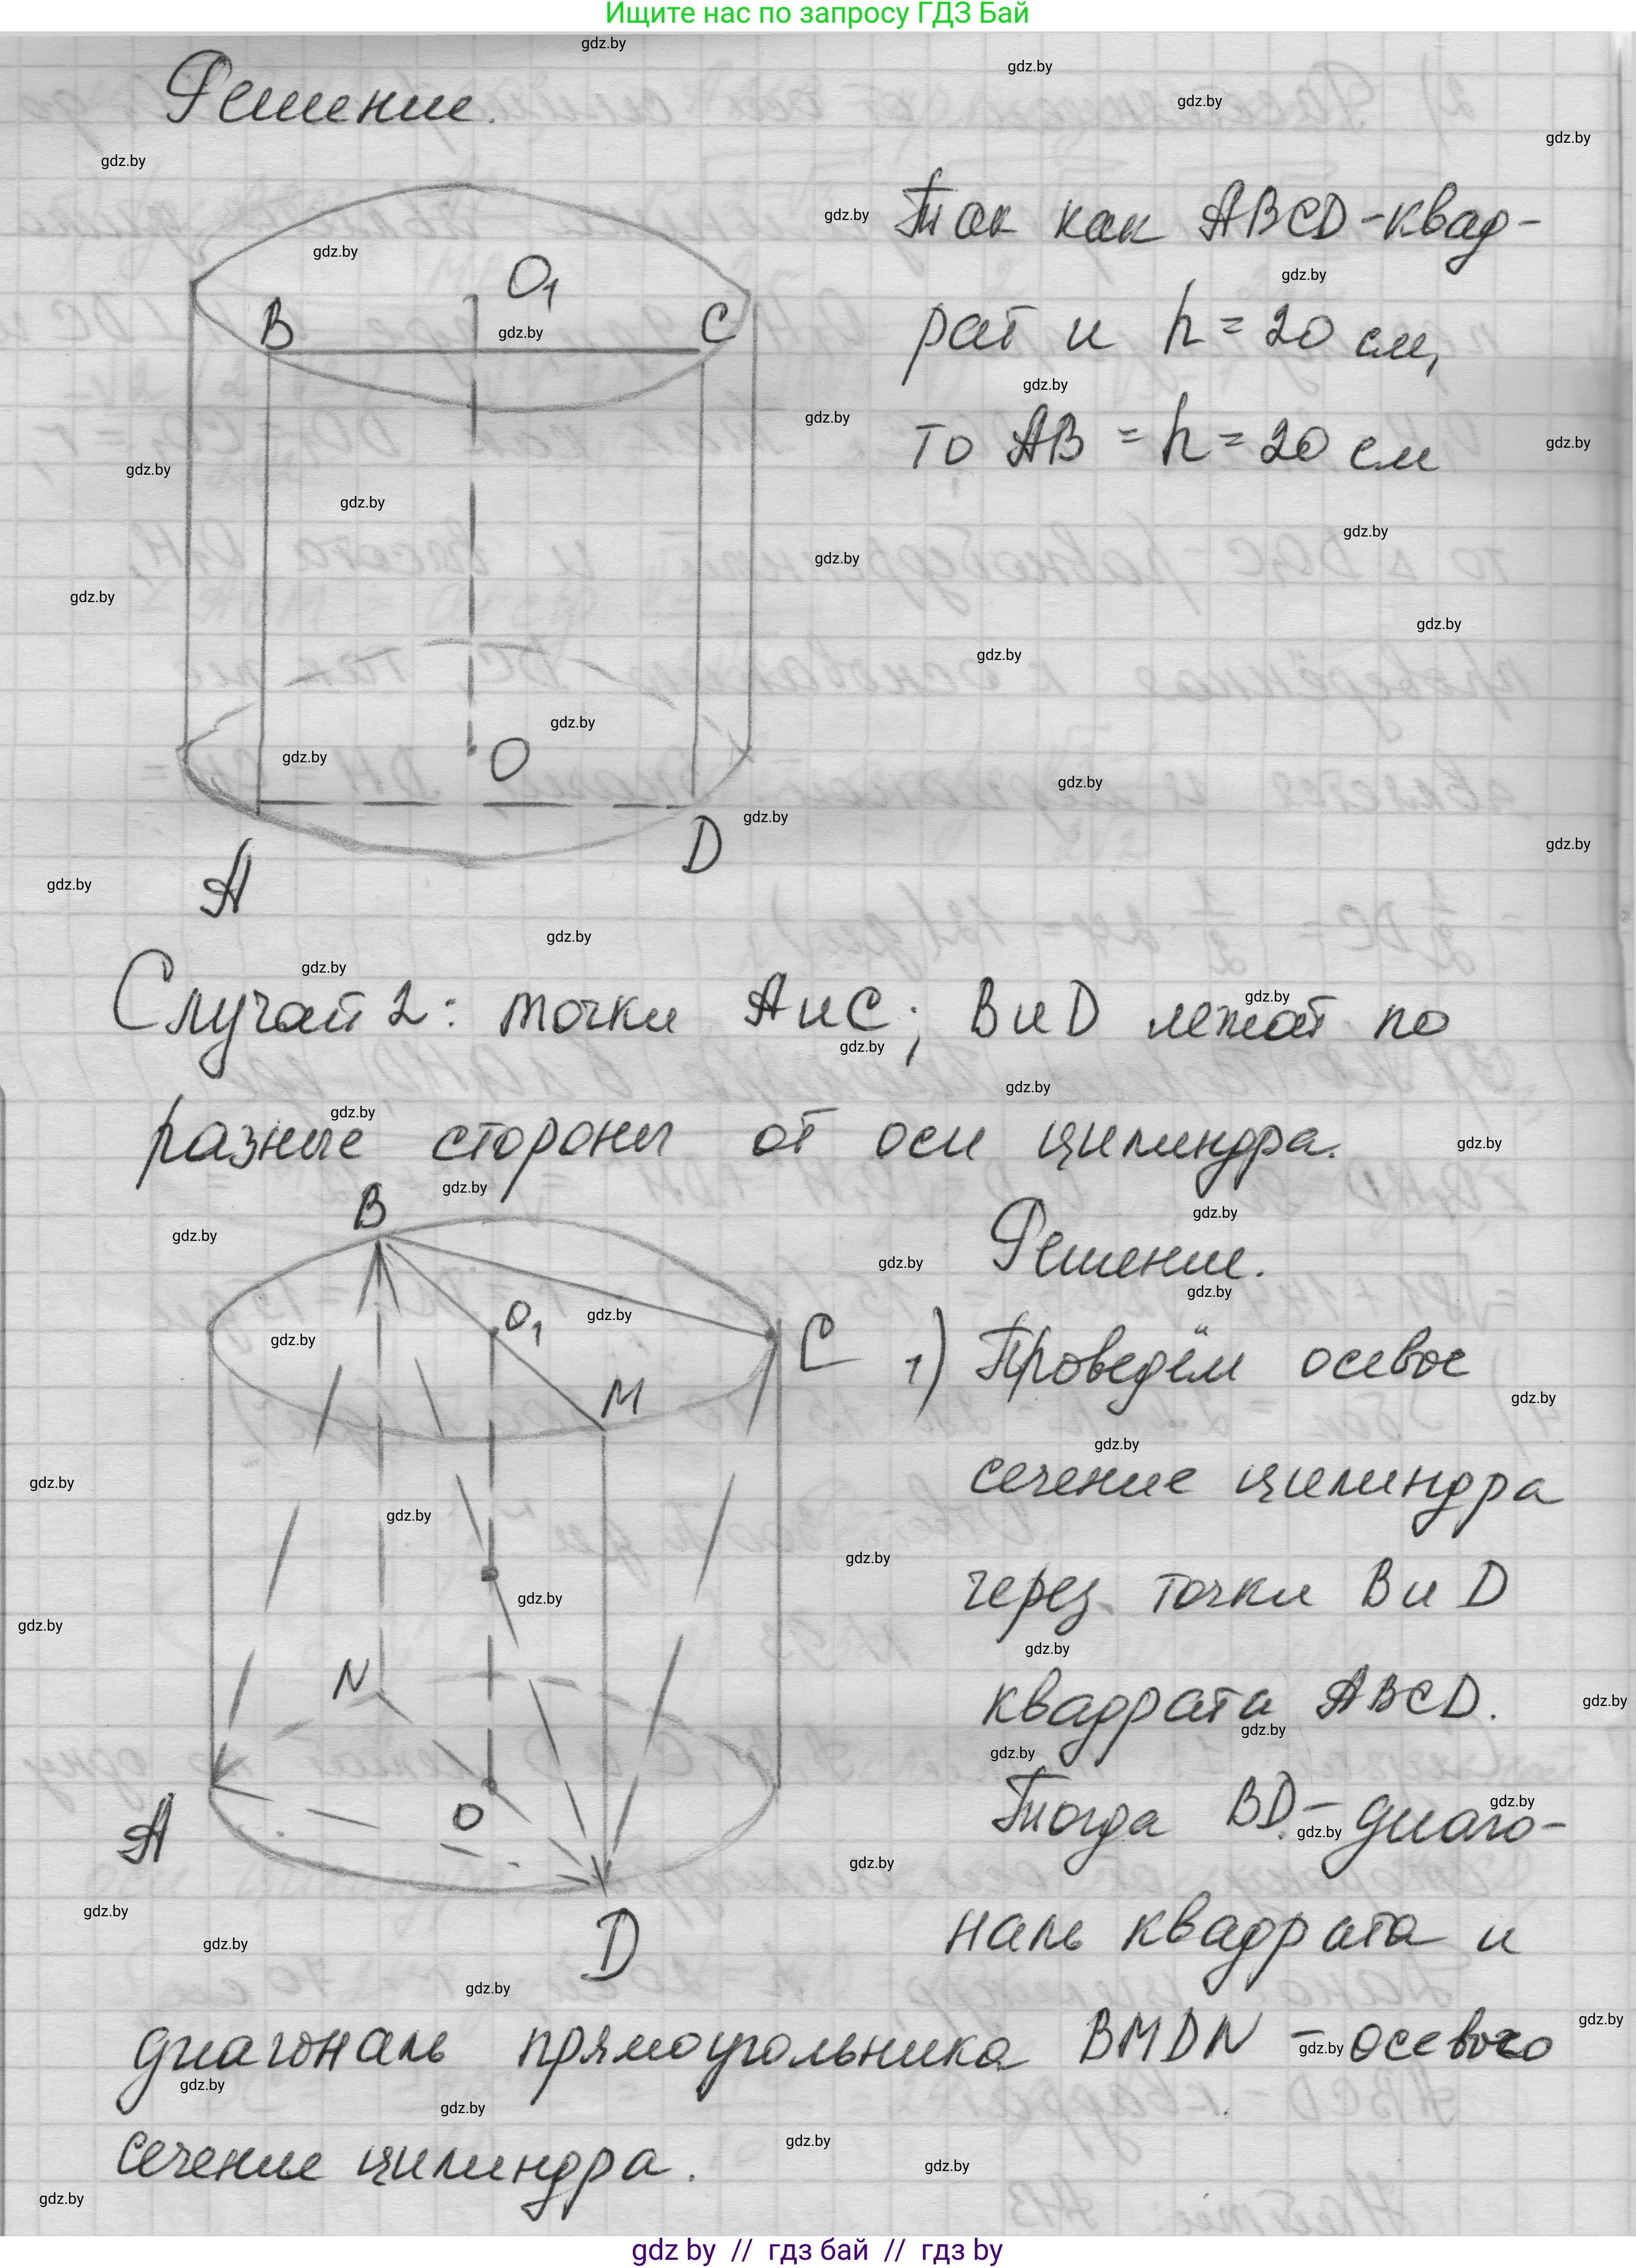 Ищите нас по запросу ГДЗ Бай
Решение.
Так как ABCD-квад-
рат и h = 20 см,
то AB = h = 20 см
B
O₁
C
O
A
D
Случай 2: точки A и C; B и D лежат по
разные стороны от оси цилиндра.
Решение.
1) Проведём осевое
сечение цилиндра
через точки B и D
квадрата ABCD.
Тогда BD - диаго-
наль квадрата и
B
O₁
C
M
N
A
O
D
диагональ прямоугольника BMDN - осевого
сечение цилиндра.
gdz by // гдз бай // гдз by